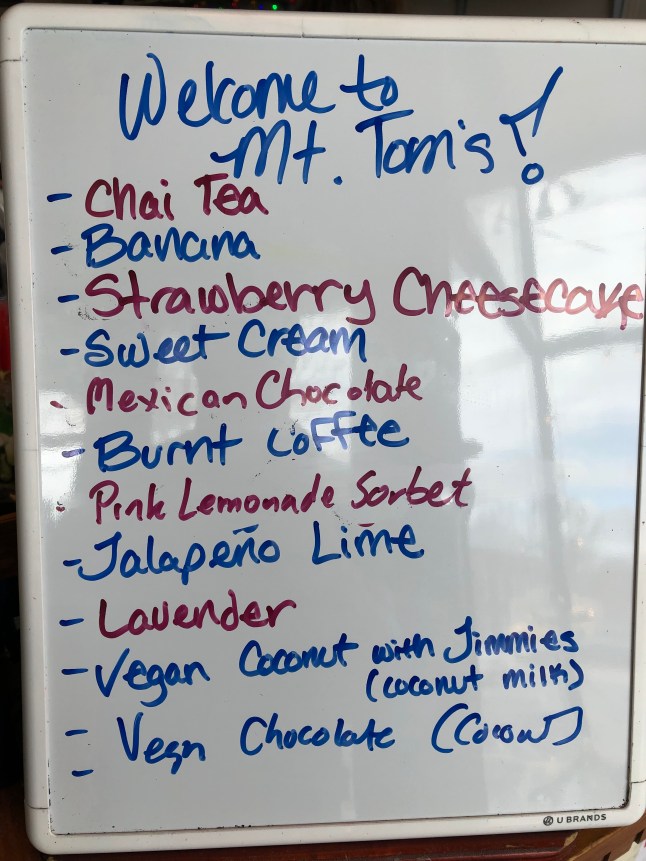 Welcome to
Mt. Tom's!
- Chai Tea
- Banana
- Strawberry Cheesecake
- Sweet Cream
- Mexican Chocolate
- Burnt Coffee
- Pink Lemonade Sorbet
- Jalapeño Lime
- Lavender
- Vegan Coconut with Jimmies
(coconut milk)
- Vegn Chocolate
-
U BRANDS